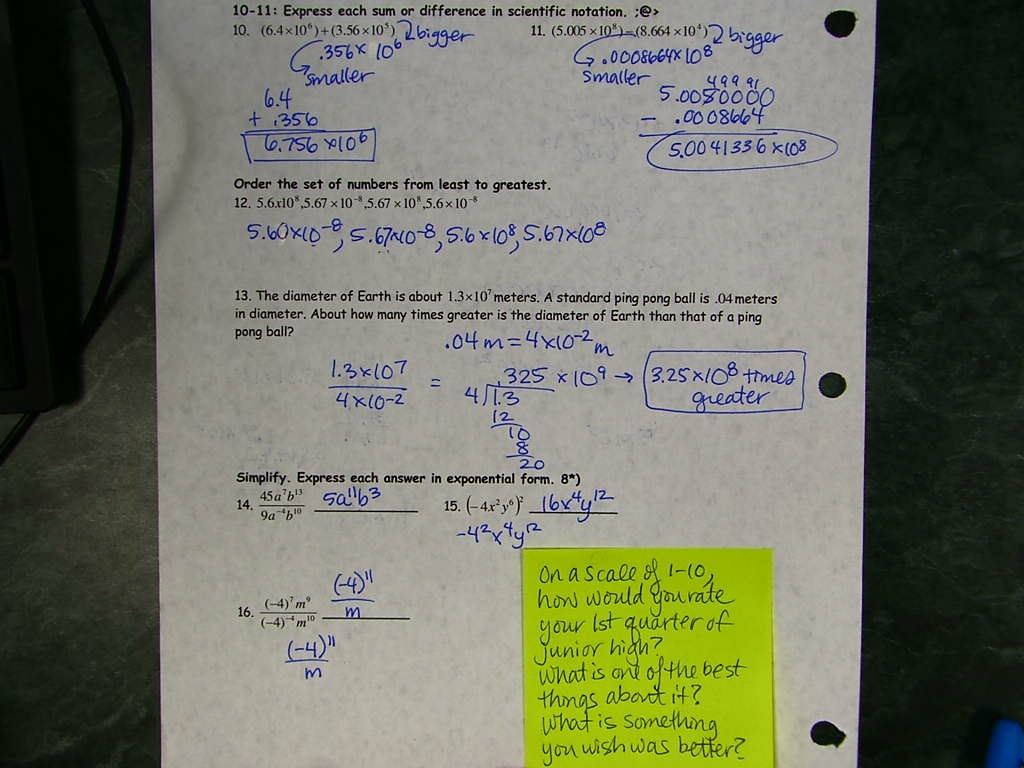 10-11: Express each sum or difference in scientific notation. ;@>
10. (6.4×10⁶)+(3.56×10⁵) bigger
.356× 10⁶
smaller
6.4
+ .356
6.756 ×10⁶
11. (5.005×10⁸)–(8.664×10⁴) bigger
.0008664×10⁸
smaller
4 9 9 9 1
5.0050000
– .0008664
5.0041336×10⁸
Order the set of numbers from least to greatest.
12. 5.6x10⁸,5.67×10⁻⁸,5.67×10⁸,5.6×10⁻⁸
5.60×10⁻⁸, 5.67×10⁻⁸, 5.6×10⁸, 5.67×10⁸
13. The diameter of Earth is about 1.3×10⁷ meters. A standard ping pong ball is .04 meters
in diameter. About how many times greater is the diameter of Earth than that of a ping
pong ball?
.04 m = 4×10⁻² m
1.3×10⁷
4×10⁻²
=
.325 ×10⁹ → 3.25×10⁸ times
greater
4 1.3
12
10
8
20
Simplify. Express each answer in exponential form. 8*)
14. 45a⁷b¹³ / 9a⁻⁴b¹⁰ 5a¹¹b³
15. (–4x²y⁶)² 16x⁴y¹²
-4²x⁴y¹²
16. (–4)⁷m⁹ / (–4)⁻⁴m¹⁰ (-4)¹¹ / m
(-4)¹¹
m
On a scale of 1-10,
how would you rate
your 1st quarter of
junior high?
What is one of the best
things about it?
What is something
you wish was better?